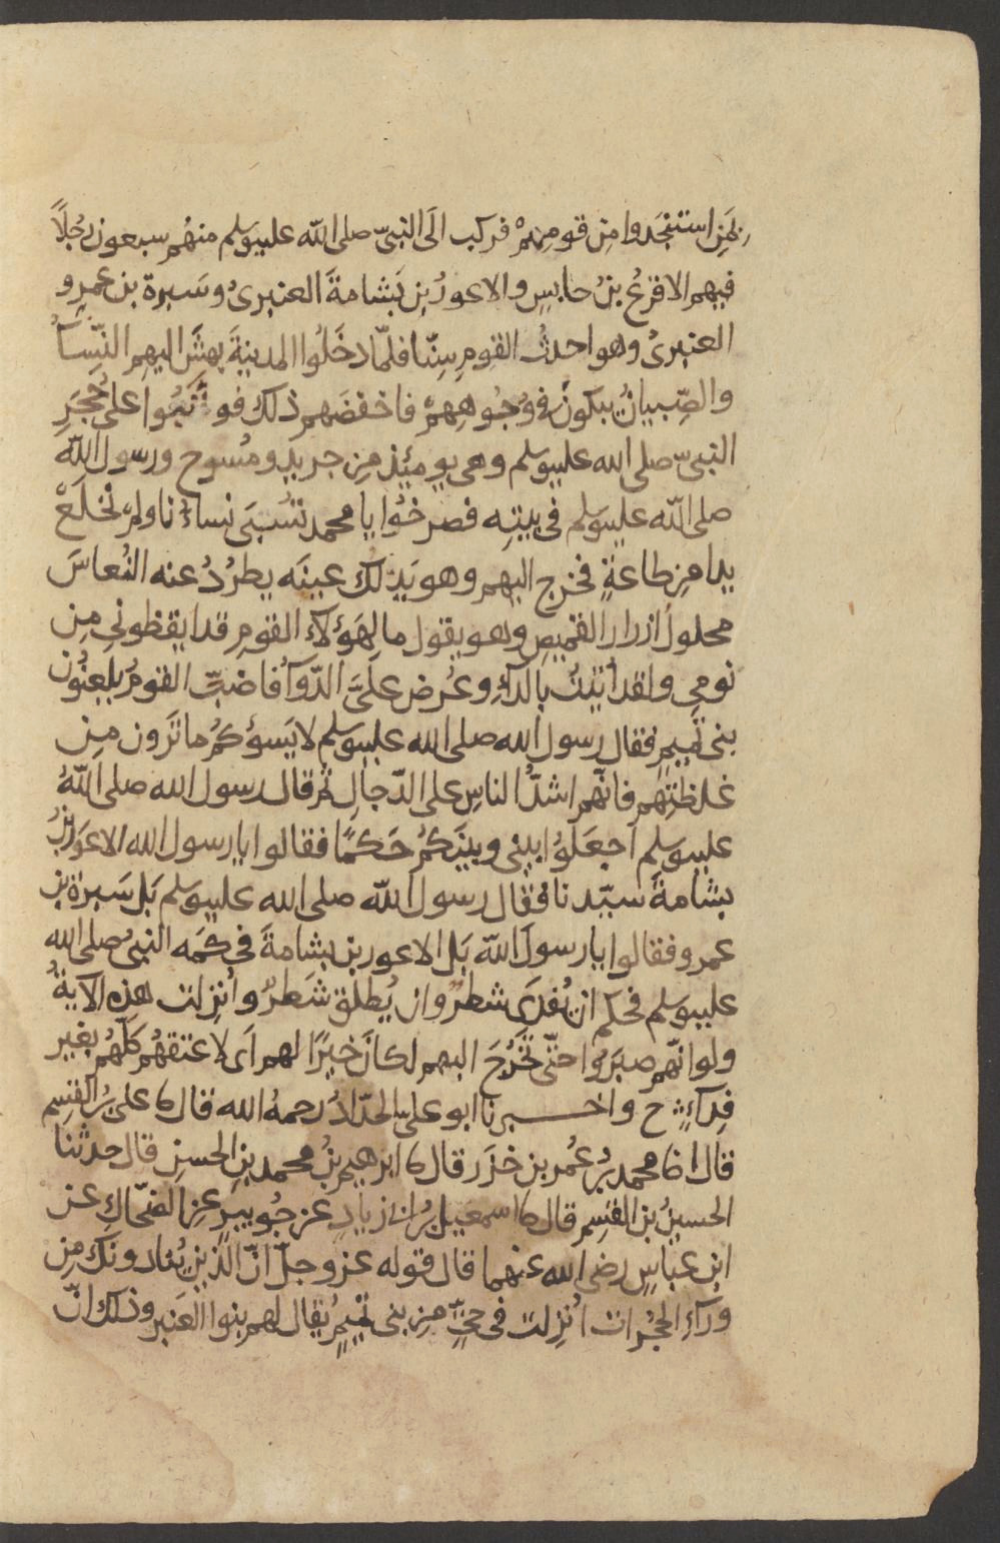 بمَن استنجَدوا مِن قومِهِمْ فركب الَى النبىّ صلى الله عليه وسلم منهُم سبعون رجُلًا
فيهم الاقرعُ بنُ حابسٍ والاعورُ بن بَشامةَ العنبرىُ وسَبرة بن عمرٍو
العنبرىُ وهو احدثُ القومِ سِنّا فلمّا دخَلُوا المدينةَ بهشَ اليهِم النّسآءُ
والصّبيانُ يبكونَ فى وُجُوهِهِمْ فاخفضَهم ذلك فوثبُوا على حُجَرِ
النبىّ صلى الله عليه وسلم وهى يومئذٍ من جريدٍ ومُسوح ورسول الله
صلى الله عليه وسلم فى بيتِه فصرخُوا يا محمد تُسْبَى نساءُنا ولم نخلَعْ
يدا مِن طاعةٍ فخرج اليهم وهو يَدْلك عينَه يطرُدُ عنه النُعاسَ
محلولَ ازرار القميصِ وهو يقول ما لِهَؤلآء القومِ قد ايقظونى مِن
نومى ولقد أُتيتُ بالدآءِ وعُرض علىَّ الدّوآءُ فاضبّ القومُ يلعنُون
بنى تميمٍ فقال رسول الله صلى الله عليه وسلم لا يَسؤكُم ما تَرَون من
غلظتِهم فانّهم اشدُّ الناسِ على الدّجالِ ثم قال رسول الله صلى اللهُ
عليه وسلم اجعَلُوا بينى وبينَكُمْ حَكمًا فقالوا يا رسول الله الاعوَرُ بنُ
بشامةَ سيّدنا فقال رسول الله صلى الله عليه وسلم بَل سَبرة بن
عمرو فقالوا يا رسولَ الله بَل الاعور بن بشامةَ فحكمَه النبىُ صلى الله
عليه وسلم فحكم ان يُفدَى شطرٌ وان يُطلَق شَطرٌ وأنزِلت هذِه الآيةُ
ولو انّهم صبَرُوا حتّى تخَرُجَ اليهم لكانَ خيرًا لهم اَى لاعتقهُم كلّهُم بغير
فدآءٍ ح واخـــبرنا ابو علىّ الحدّادُ رحمهُ الله قال نا علىّ بنُ القٰسِم
قال انا محمد بنُ عُمر بن خزَر قال نا ابرهيم بنُ محمد بن الحسنِ قال حدثنا
الحسينُ بن القٰسِم قال نا اسمعيل بنُ ابى زيادٍ عن جُويبرٍ عنِ الضحّاكِ عن
ابن عباسٍ رضى الله عنهما قال قوله عزوجلّ انّ الّذين يُنادونك من
ورآء الحجُرات اُنزِلت فى حىٍّ مِن بنى تميمٍ يُقال لهم بنوا العَنبر وذلك انّ